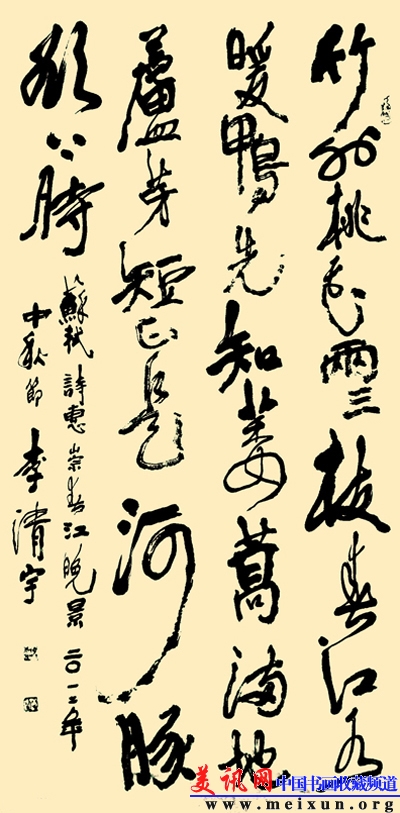 竹外桃花兩三枝春江水
暖鴨先知蔞蒿滿地
蘆芽短正是河豚
欲上時
蘇軾詩惠崇春江晚景二〇一三年
中秋節李清宇
美讯网 中国书画收藏频道
www.meixun.org